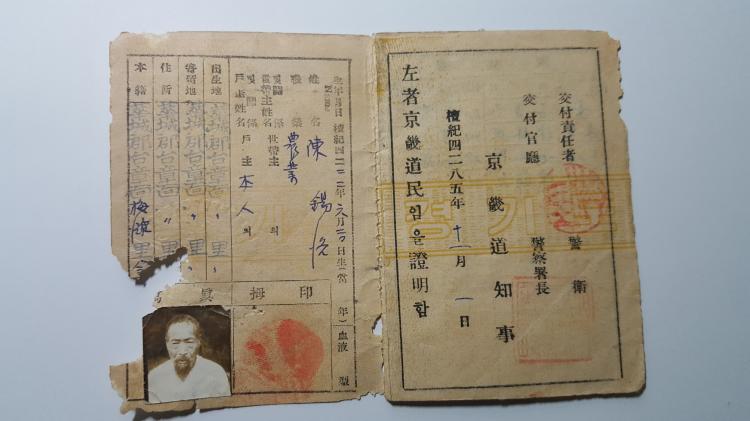 交付責任者 警衛
交付官廳 警察署長
京畿道知事
檀紀四二八五年十一月一日
左者京畿道民임을證明함
경기도
生年月日 檀紀四二二二年六月二〇日生(當 年) 血液型
姓名 陳錫
職業 農業
世帶主姓名 世帶主의
戶主姓名 戶主 本人의
出生地 華城郡台章面 〃 里 〃
寄留地 華城郡台章面 〃 里 〃
住所 華城郡台章面 〃 里 〃
本籍 華城郡台章面 梅灘里
印 拇 眞